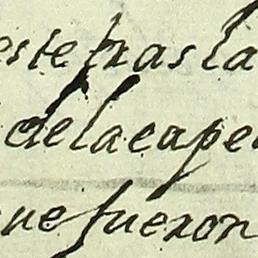 este trasla
de la cape
que fueron